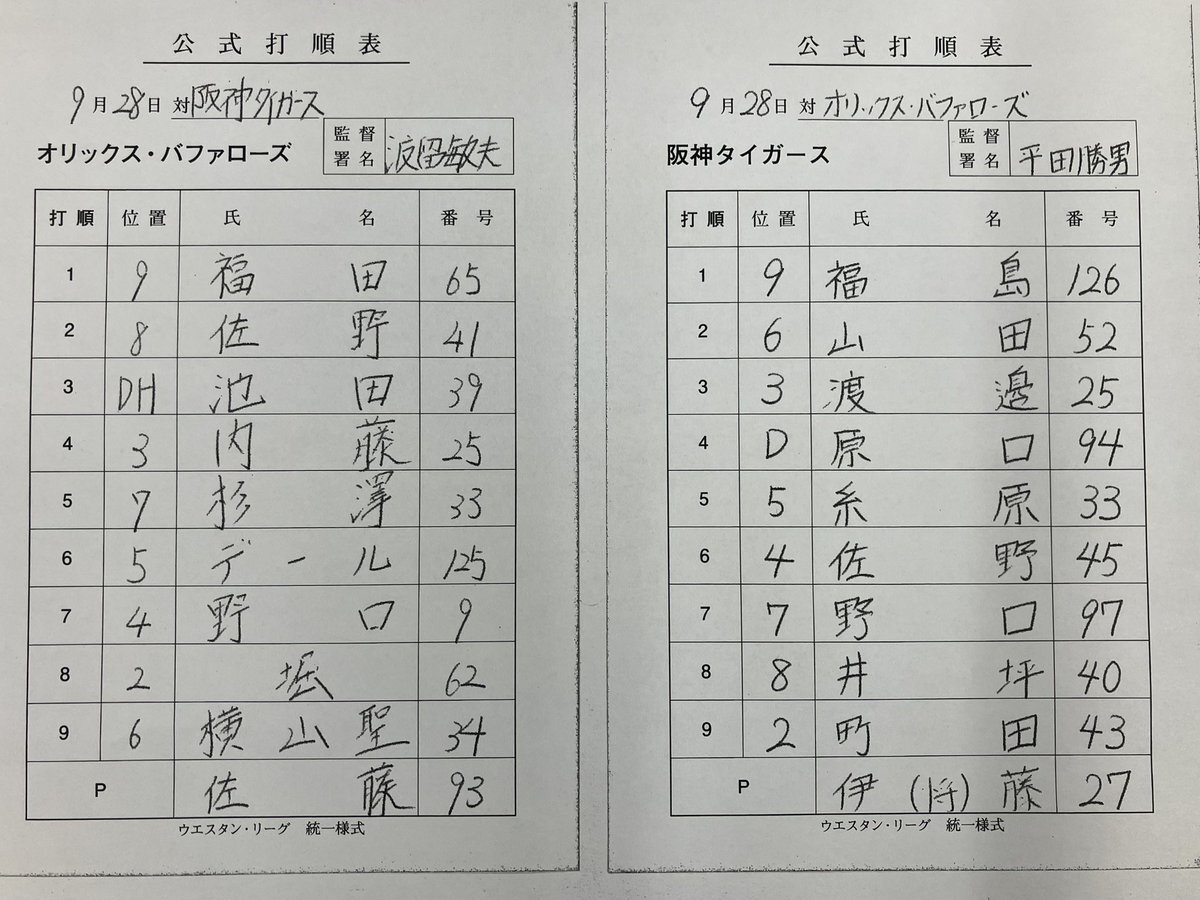 公式打順表
9月28日 対 阪神タイガース
オリックス・バファローズ 監督署名 波留敏夫
打順 位置 氏名 番号
1 9 福田 65
2 8 佐野 41
3 DH 池田 39
4 3 内藤 25
5 7 杉澤 33
6 5 デール 125
7 4 野口 9
8 2 堀 62
9 6 横山聖 34
P 佐藤 93
ウエスタン・リーグ 統一様式
公式打順表
9月28日 対 オリックス・バファローズ
阪神タイガース 監督署名 平田勝男
打順 位置 氏名 番号
1 9 福島 126
2 6 山田 52
3 3 渡邉 25
4 D 原口 94
5 5 糸原 33
6 4 佐野 45
7 7 野口 97
8 8 井坪 40
9 2 町田 43
P 伊(将)藤 27
ウエスタン・リーグ 統一様式